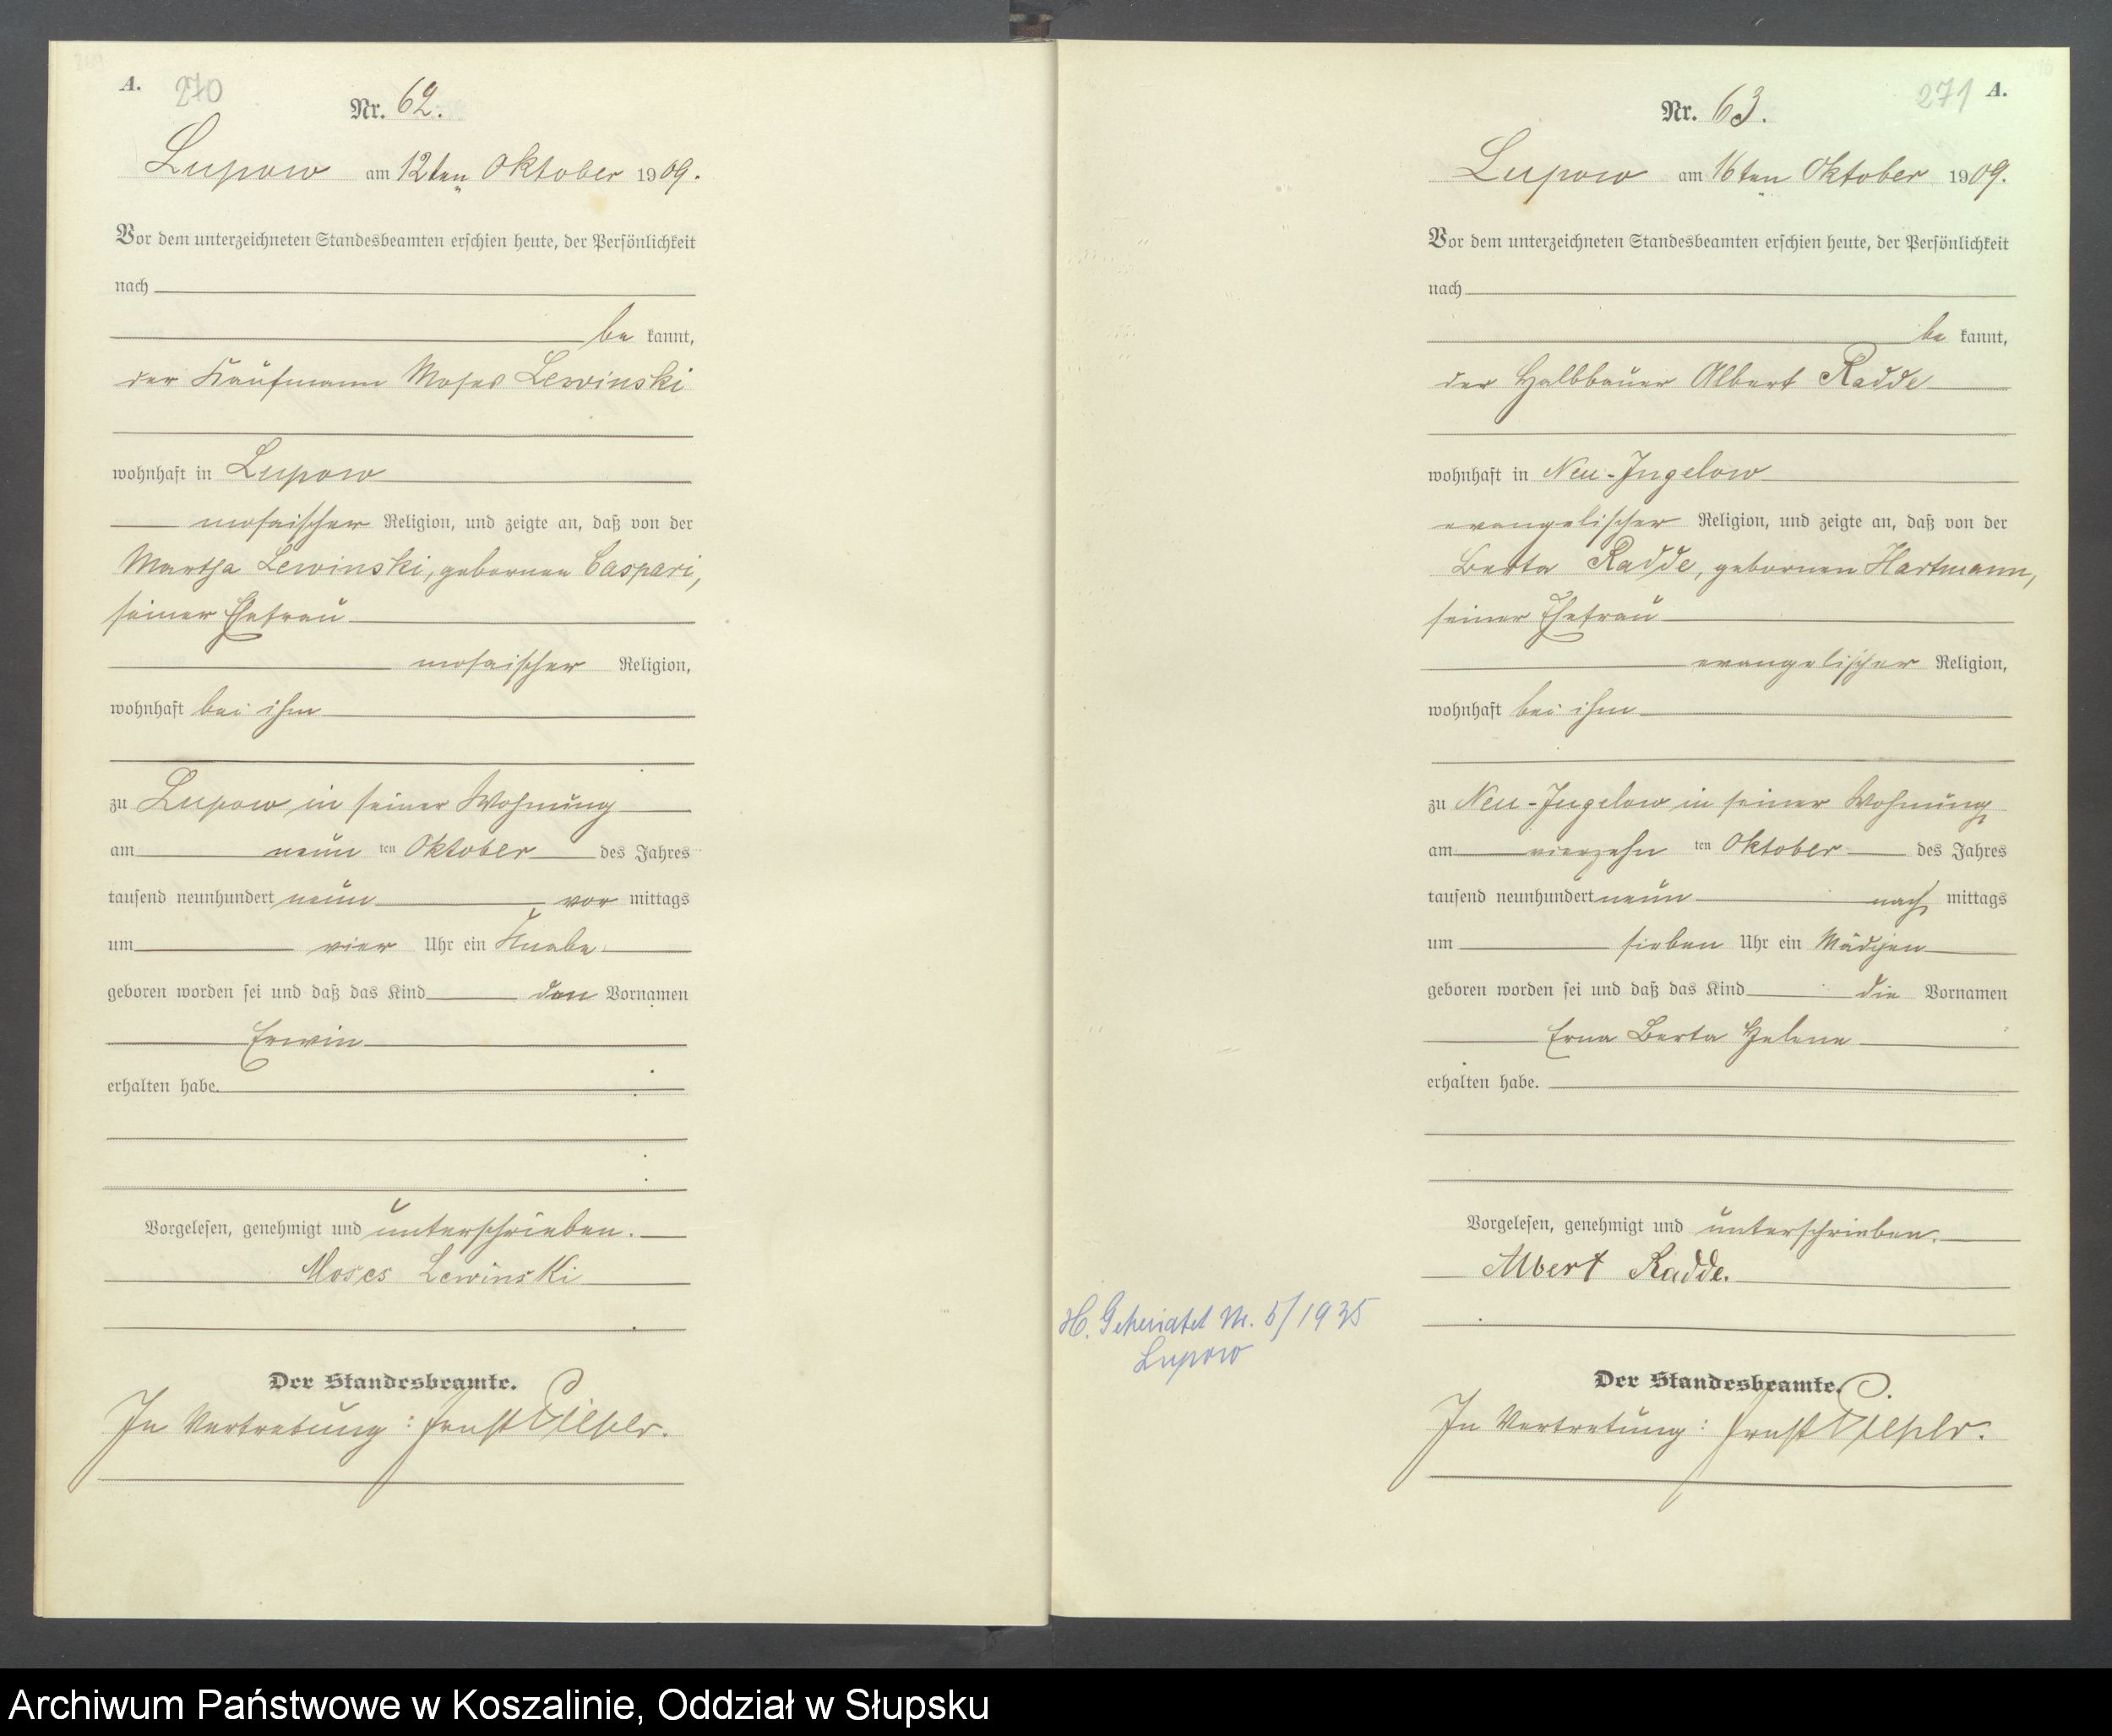 A. 270
Nr. 62.
Lupow am 12ten Oktober 1909.
Vor dem unterzeichneten Standesbeamten erschien heute, der Persönlichkeit
nach
be kannt,
der Kaufmann Moses Lewinski
wohnhaft in Lupow
mosaischer Religion, und zeigte an, daß von der
Martha Lewinski, geborenen Caspari,
seiner Ehefrau
mosaischer Religion,
wohnhaft bei ihm
zu Lupow in seiner Wohnung
am neun ten Oktober des Jahres
tausend neunhundert neun vor mittags
um vier Uhr ein Knabe
geboren worden sei und daß das Kind den Vornamen
Erwin
erhalten habe.
Vorgelesen, genehmigt und unterschrieben.
Moses Lewinski
Der Standesbeamte.
In Vertretung: Ernst
271 A.
Nr. 63.
Lupow am 16ten Oktober 1909.
Vor dem unterzeichneten Standesbeamten erschien heute, der Persönlichkeit
nach
be kannt,
der Halbbauer Albert Radde
wohnhaft in Neu-Jugelow
evangelischer Religion, und zeigte an, daß von der
Berta Radde, geborenen Hartmann,
seiner Ehefrau
evangelischer Religion,
wohnhaft bei ihm
zu Neu-Jugelow in seiner Wohnung
am vierzehn ten Oktober des Jahres
tausend neunhundert neun nach mittags
um sieben Uhr ein Mädchen
geboren worden sei und daß das Kind die Vornamen
Erna Berta Helene
erhalten habe.
Vorgelesen, genehmigt und unterschrieben.
Albert Radde.
H. Geheiratet Nr. 5/1935
Lupow
Der Standesbeamte.
In Vertretung: Ernst
Archiwum Państwowe w Koszalinie, Oddział w Słupsku